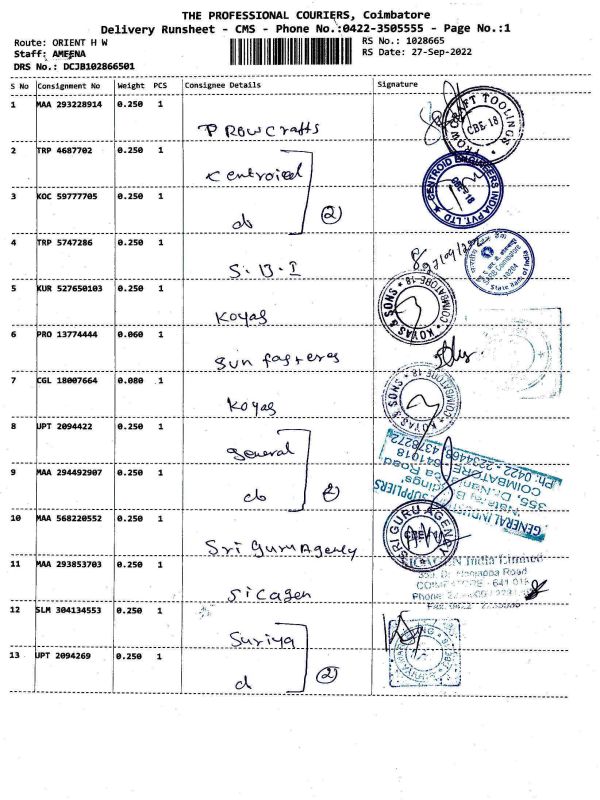 THE PROFESSIONAL COURIERS, Coimbatore
Delivery Runsheet - CMS - Phone No.:0422-3505555 - Page No.:1
Route: ORIENT H W
RS No.: 1028665
Staff: AMEENA
RS Date: 27-Sep-2022
DRS No.: DCJB102866501
S No Consignment No Weight PCS Consignee Details Signature
1 MAA 293228914 0.250 1
Prowcrafts
PROW CRAFT TOOLINGS CBE-18
2 TRP 4687702 0.250 1
Centroied
CENTROID ENGINEERS INDIA PVT. LTD CBE-18
3 KOC 59777705 0.250 1
do (2)
4 TRP 5747286 0.250 1
S.B.I
State Bank of India
5 KUR 527650103 0.250 1
Koyas
KOYAS & SONS COIMBATORE-18
6 PRO 13774444 0.060 1
Sun fasteres
7 CGL 18007664 0.080 1
Koyas
KOYAS & SONS COIMBATORE-18
8 UPT 2094422 0.250 1
general
GENERAL INDUSTRIAL SUPPLIERS
355, Dr. Nanjappa Road
COIMBATORE 641018
Ph: 0422 - 2234468 4378272
9 MAA 294492907 0.250 1
do (2)
10 MAA 568220552 0.250 1
Sri Guru Agenly
SRI GURU AGENCY CBE-18
11 MAA 293853703 0.250 1
Sicagen
SICAGEN India Limited
Nanjappa Road
COIMBATORE - 641 018
Phone
12 SLM 304134553 0.250 1
Suriya
13 UPT 2094269 0.250 1
d (2)